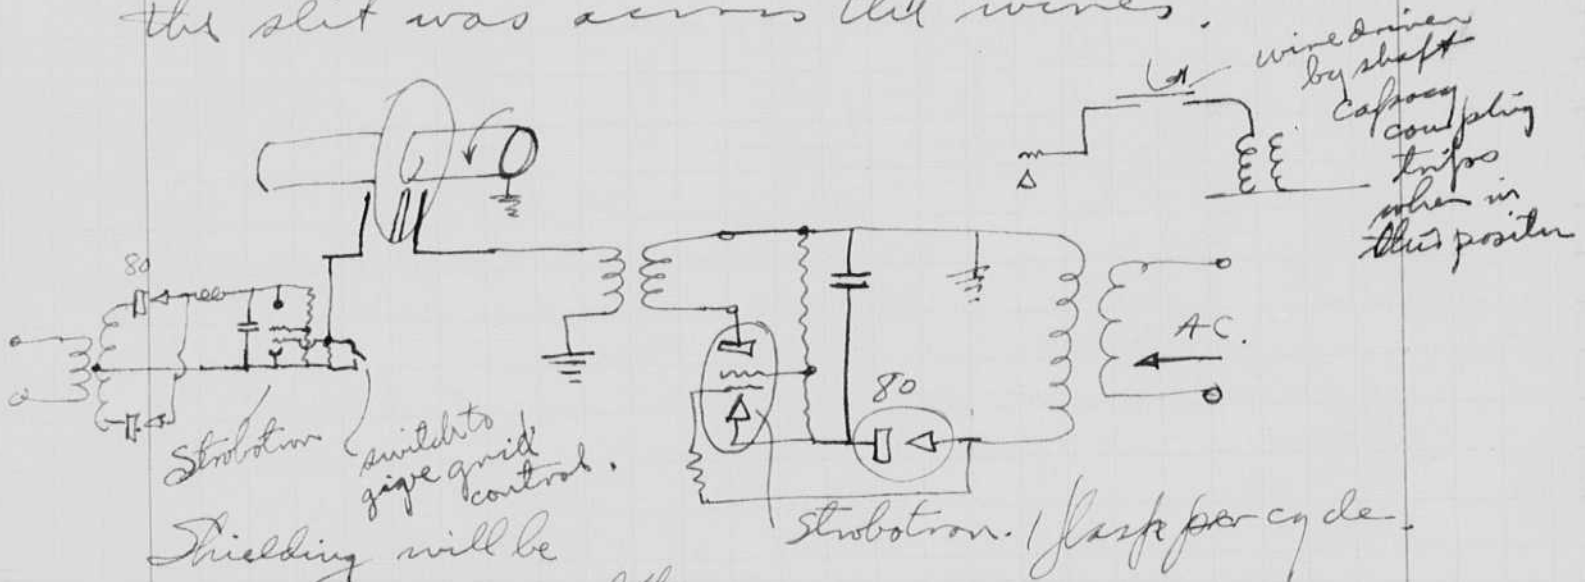 the slit was across the wires.
wire driven
by shaft
capacy
coupling
trips
when in
this position
80
A.C.
80
Strobotron
switch to
give grid
control.
Strobotron. 1 flash per cycle.
Shielding will be